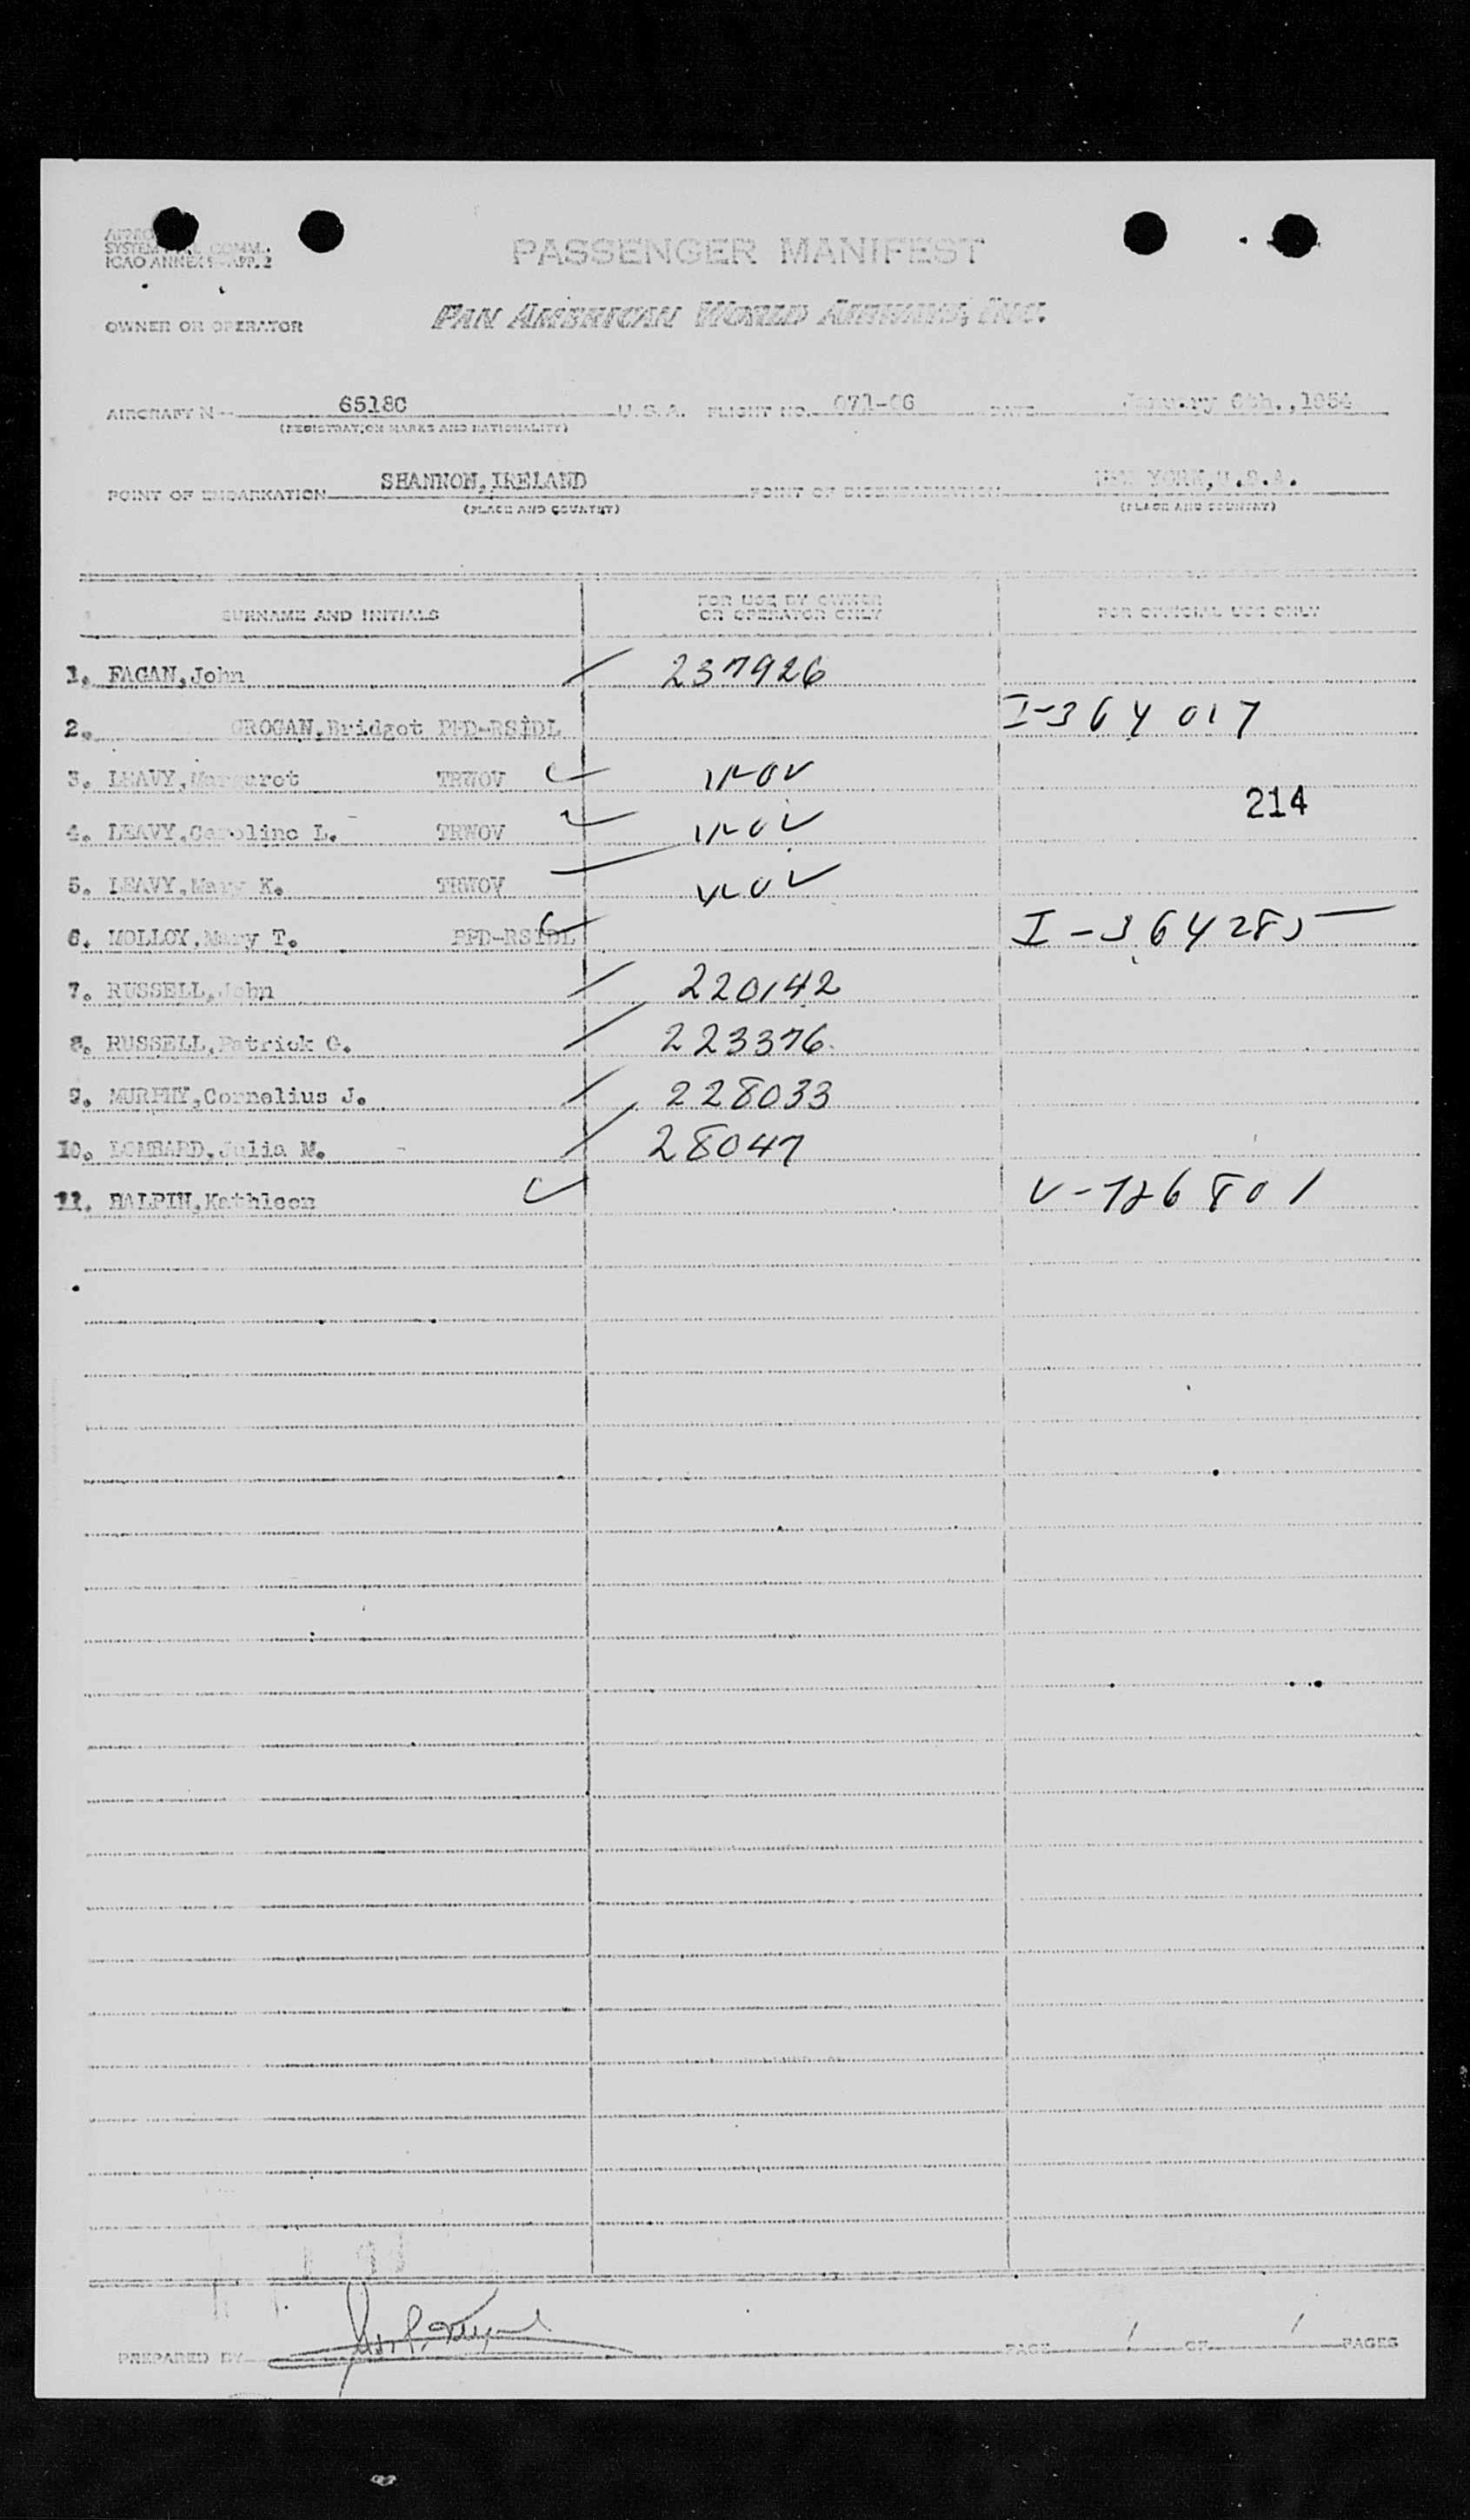 SYSTEM COMM.
ICAO ANNEX 9 - APP. 2
PASSENGER MANIFEST
OWNER OR OPERATOR PAN AMERICAN WORLD AIRWAYS, INC.
AIRCRAFT N 6518C U.S.A. FLIGHT NO. 071-06 DATE January 6th.,1954
(REGISTRATION MARKS AND NATIONALITY)
POINT OF EMBARKATION SHANNON,IRELAND POINT OF DISEMBARKATION NEW YORK,U.S.A.
(PLACE AND COUNTRY) (PLACE AND COUNTRY)
SURNAME AND INITIALS FOR USE BY OWNER OR OPERATOR ONLY FOR OFFICIAL USE ONLY
1. FAGAN,John 237926
2. GROGAN,Bridget PPD-RSIDL I-364017
3. LEAVY,Margaret TRWOV
214
4. LEAVY,Caroline L. TRWOV
5. LEAVY,Mary K. TRWOV
6. MOLLOY,Mary T. PPD-RSIDL I-364285
7. RUSSELL,John 220142
8. RUSSELL,Patrick G. 223376
9. MURPHY,Cornelius J. 228033
10. LOMBARD,Julia M. 28047
11. HALPIN,Kathleen V-726801
PREPARED BY PAGE 1 OF 1 PAGES